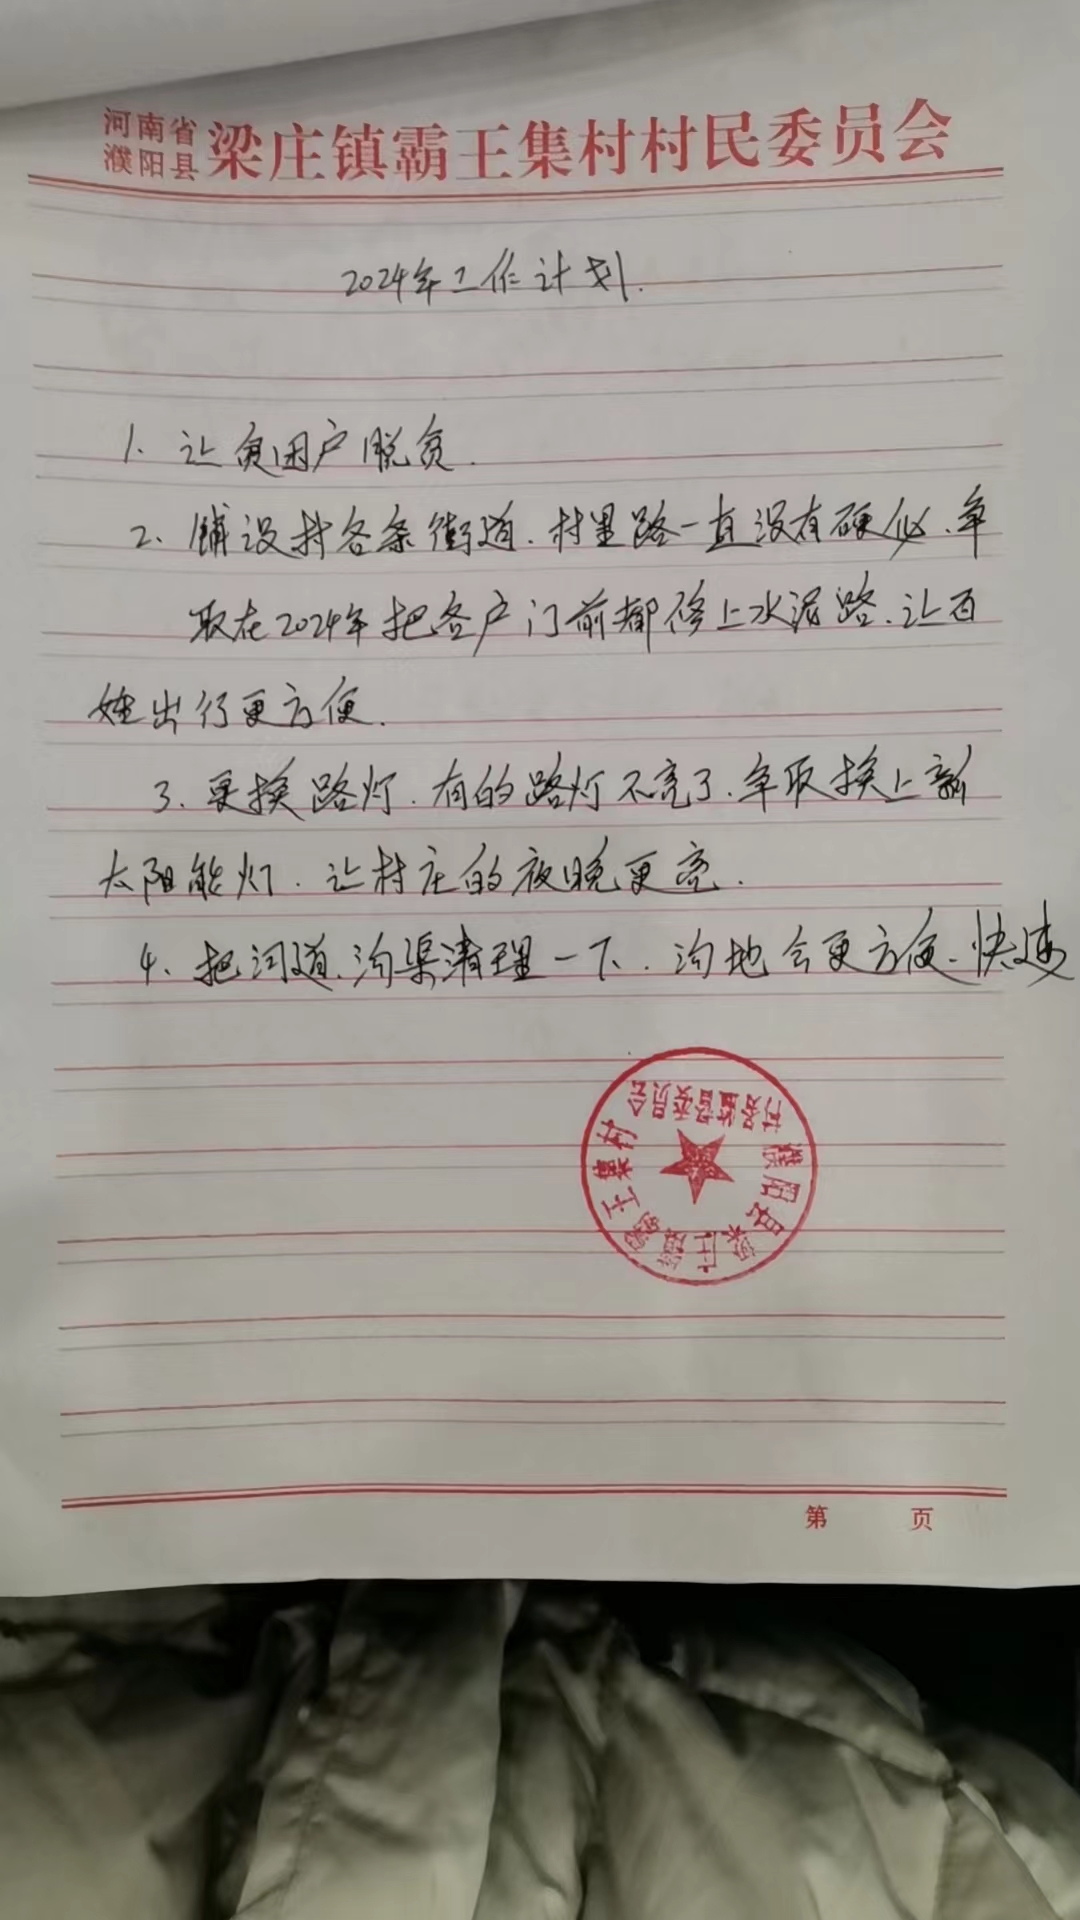 河南省
濮阳县
梁庄镇霸王集村村民委员会
2024年工作计划.
1. 让贫困户脱贫.
2. 铺设村各条街道.村里路一直没有硬化.争
取在2024年把各户门前都修上水泥路.让百
姓出行更方便.
3. 更换路灯.有的路灯不亮了.争取换上新
太阳能灯.让村庄的夜晚更亮.
4. 把河道.沟渠清理一下.沟地会更方便.快速
濮阳县梁庄镇霸王集村
村务监督委员会
第 页